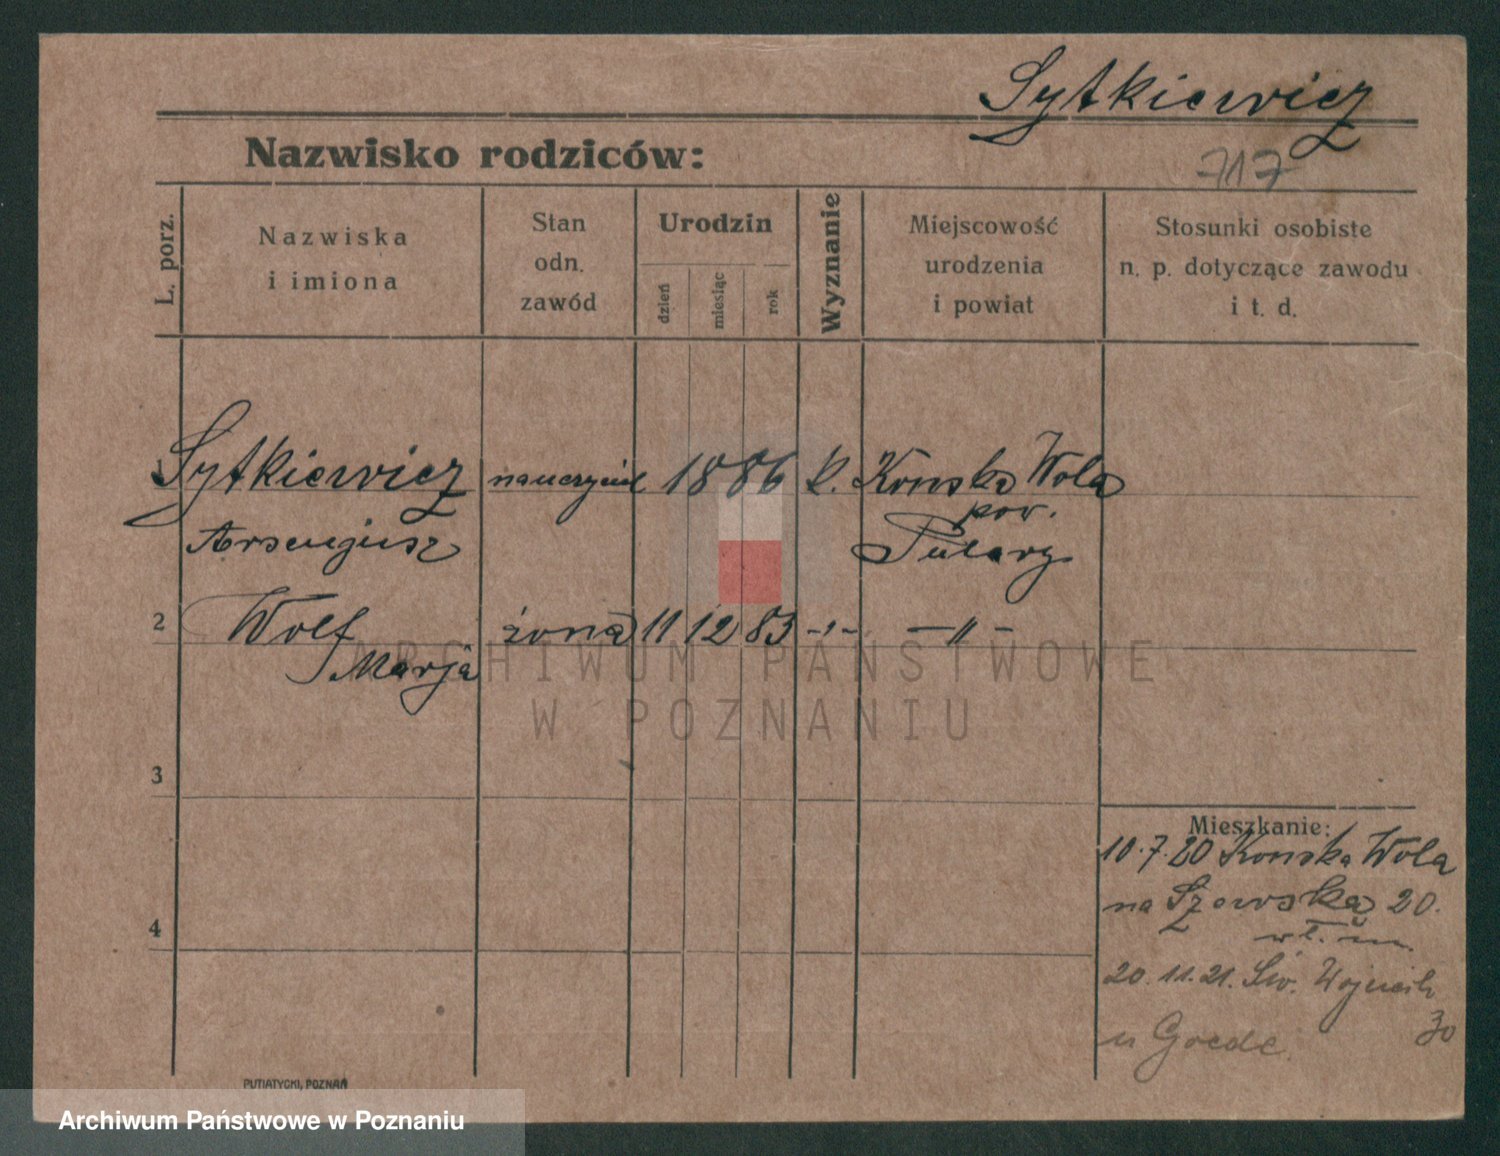 Sytkiewicz
Nazwisko rodziców:
717
L. porz.
Nazwiska
i imiona
Stan
odn.
zawód
Urodzin
dzień
miesiąc
rok
Wyznanie
Miejscowość
urodzenia
i powiat
Stosunki osobiste
n. p. dotyczące zawodu
i t. d.
1 Sytkiewicz nauczyciel 1886 k. Końska Wola
pow.
Arsenjusz Puławy
2 Wolf żona 11 12 83 -"- -"-
Marja
ARCHIWUM PAŃSTWOWE
W POZNANIU
3
Mieszkanie:
10.7.20 Konska Wola
na Szewską 20.
wł. m.
4
20.11.21. Św. Wojciech
30
u Goede.
PUTIATYCKI, POZNAŃ
Archiwum Państwowe w Poznaniu